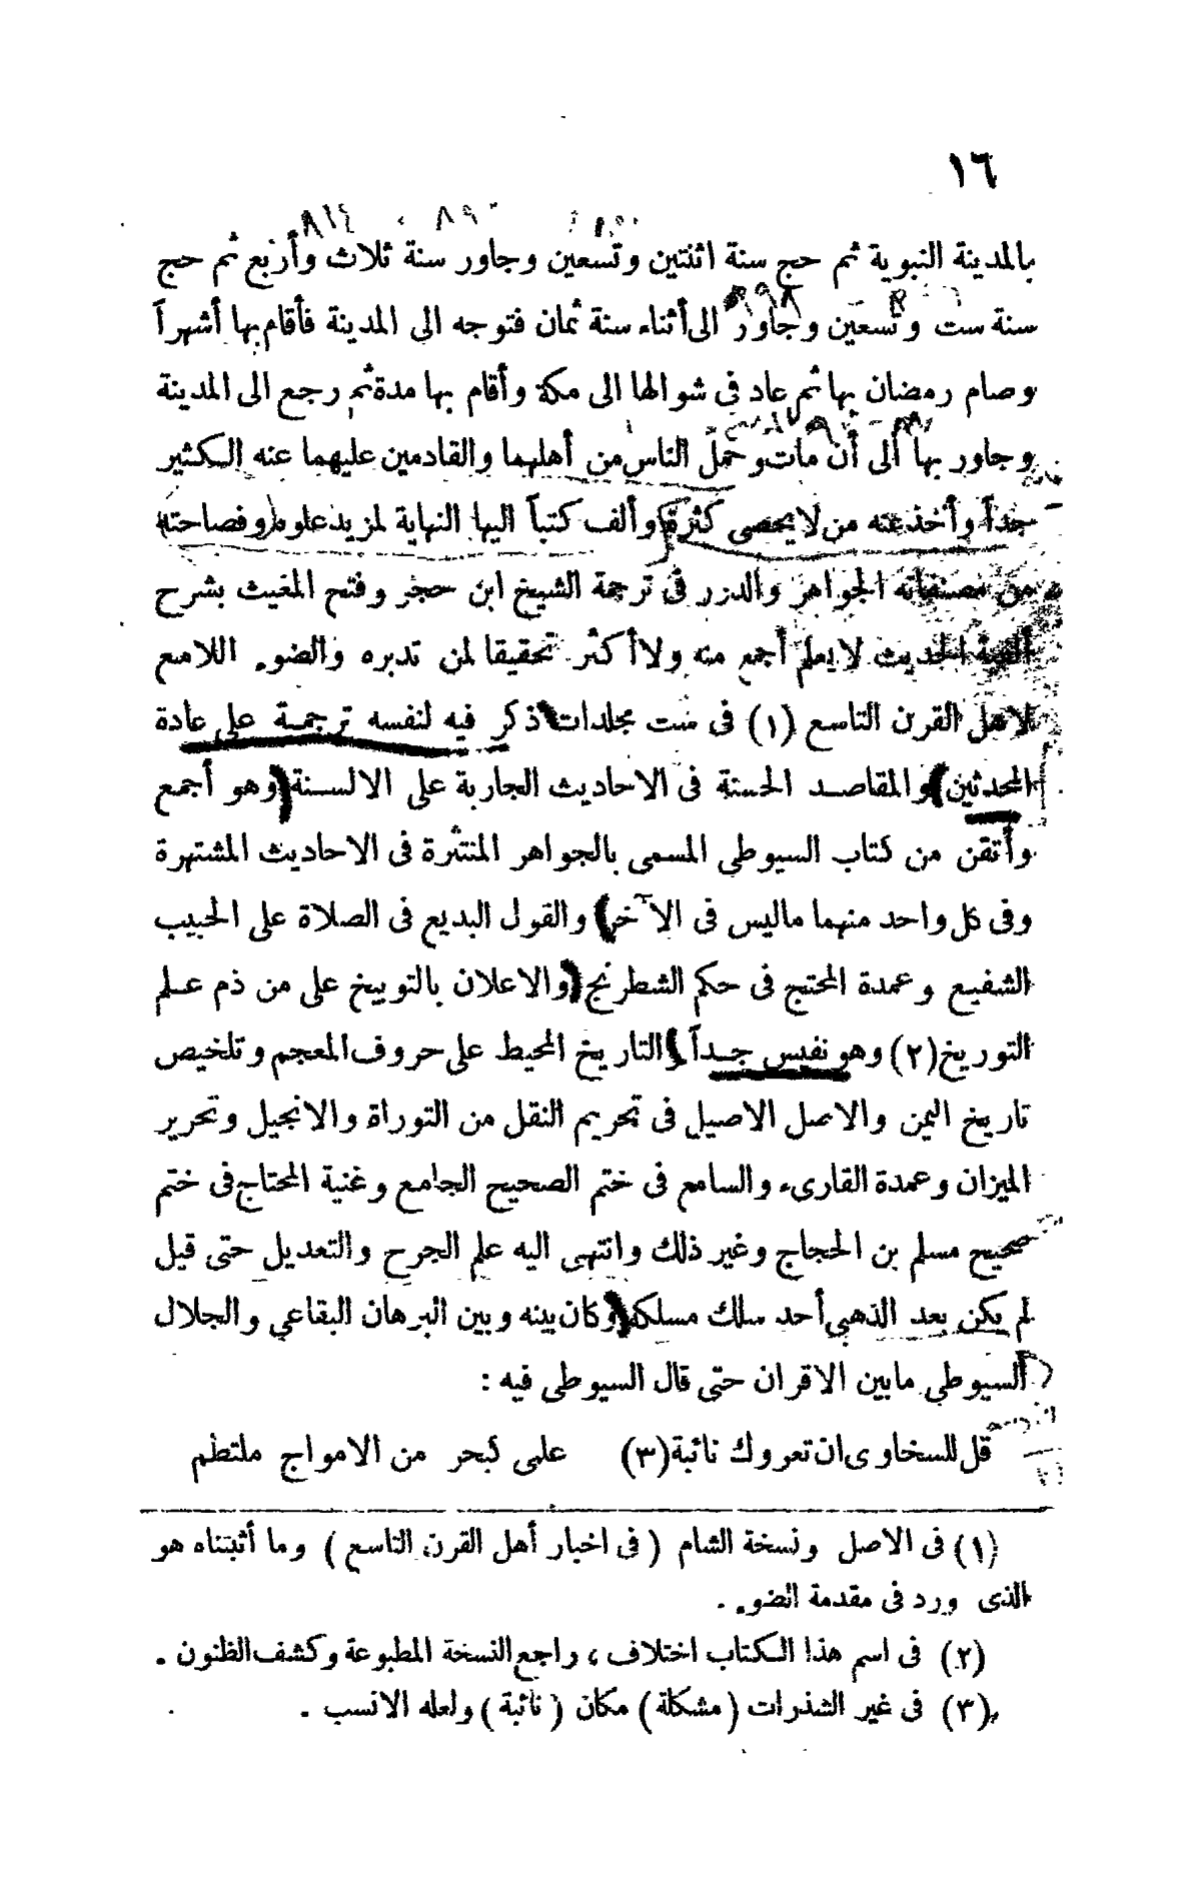 ١٦
بالمدينة النبوية ثم حج سنة اثنتين وتسعين وجاور سنة ثلاث وأربع ثم حج
سنة ست وتسعين وجاور الى أثناء سنة ثمان فتوجه الى المدينة فأقام بها أشهراً
وصام رمضان بها ثم عاد فى شوالها الى مكة وأقام بها مدة ثم رجع الى المدينة
وجاور بها الى أن مات وحمل الناس من أهلهما والقادمين عليهما عنه الكثير
جداً وأخذ عنه من لا يحصى كثرة وألف كتباً اليها النهاية لمزيد علوه وفصاحته
من مصنفاته الجواهر والدرر فى ترجمة الشيخ ابن حجر وفتح المغيث بشرح
ألفية الحديث لا يعلم أجمع منه ولا أكثر تحقيقا لمن تدبره والضوء اللامع
لاهل القرن التاسع (١) فى ست مجلدات ذكر فيه لنفسه ترجمة على عادة
المحدثين والمقاصد الحسنة فى الاحاديث الجارية على الالسنة وهو أجمع
وأتقن من كتاب السيوطى المسمى بالجواهر المنتثرة فى الاحاديث المشتهرة
وفى كل واحد منهما ماليس فى الآخر والقول البديع فى الصلاة على الحبيب
الشفيع وعمدة المحتج فى حكم الشطرنج والاعلان بالتوبيخ على من ذم علم
التوريخ (٢) وهو نفيس جداً والتاريخ المحيط على حروف المعجم وتلخيص
تاريخ اليمن والاصل الاصيل فى تحريم النقل من التوراة والانجيل وتحرير
الميزان وعمدة القارىء والسامع فى ختم الصحيح الجامع وغنية المحتاج فى ختم
صحيح مسلم بن الحجاج وغير ذلك وانتهى اليه علم الجرح والتعديل حتى قيل
لم يكن بعد الذهبى أحد سلك مسلكه وكان بينه وبين البرهان البقاعي والجلال
السيوطى مابين الاقران حتى قال السيوطى فيه :
قل للسخاوى ان تعروك نائبة (٣) علمى كبحر من الامواج ملتطم
(١) فى الاصل ونسخة الشام ( فى اخبار أهل القرن التاسع ) وما أثبتناه هو
الذى ورد فى مقدمة الضوء .
(٢) فى اسم هذا الكتاب اختلاف ، راجع النسخة المطبوعة وكشف الظنون .
(٣) فى غير الشذرات (مشكلة) مكان (نائبة) ولعله الانسب .